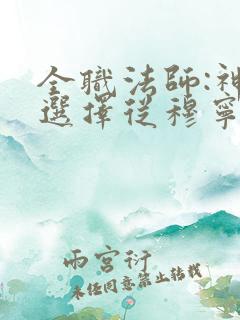 全職法師:神
選擇從穆寧
雨宮衍
未经同意禁止转载